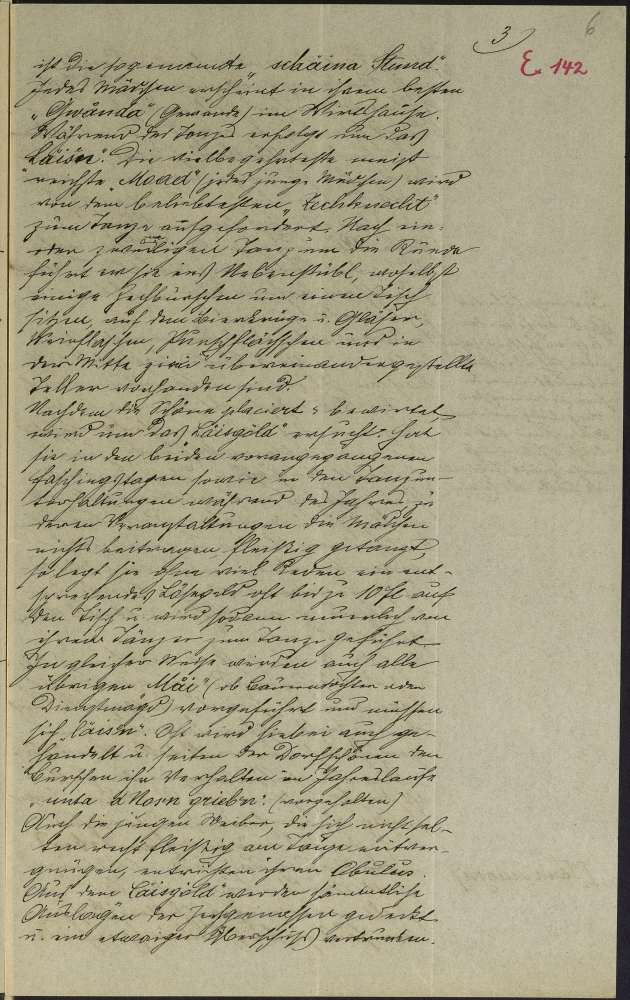 3
6
E. 142
ist die sogenannte „schäina Stund“.
Jedes Mädchen erscheint in ihrem besten
„Gwånda“ (Gewande) im Wirtshause.
Während des Tanzes erfolgt nun das
„Läisn“. Die vielbegehrteste meist
reichste „Moad“ (jedes junge Mädchen) wird
von dem beliebtesten „Zechknecht“
zum Tanze aufgefordert. Nach ein-
oder zweimaligen Tanz um die Runde
führt er sie ins Nebenstübl, woselbst
einige Zechburschen um einen Tisch
sitzen, auf dem Bierkrüge u. Gläser,
Weinflaschen, Punschfläschchen und in
der Mitte zwei übereinandergestellte
Teller vorhanden sind.
Nachdem die Schöne placiert u. bewirtet,
wird um das „Läisgöld“ ersucht; hat
sie in den beiden vorangegangenen
Faschingstagen sowie in den Tanzun-
terhaltungen während des Jahres, zu
deren Veranstaltungen die Mädchen
nichts beitragen, fleißig getanzt,
so legt sie ohne viel Reden ein ent-
sprechendes Lösegeld oft bis zu 10 fl auf
den Tisch u. wird sodann neuerlich von
ihrem Tänzer zum Tanze geführt.
In gleicher Weise werden auch alle
übrigen „Måi“ (ob Bauerntöchter oder
Dienstmägde) vorgeführt und müssen
sich „läisn“. Oft wird hiebei auch ge-
handelt u. seitens der Dorfschönen den
Burschen ihr Verhalten im Jahreslaufe
„unta d Nosn griebn“. (vorgehalten)
Auch die jungen Weiber, die sich nicht sel-
ten recht fleißig am Tanze mitver-
gnügen, entrichten ihren Obulus.
Aus dem „Läisgöld“ werden sämmtliche
Auslagen der Zechgenossen gedeckt
u. ein etwaiger Überschuß vertrunken.